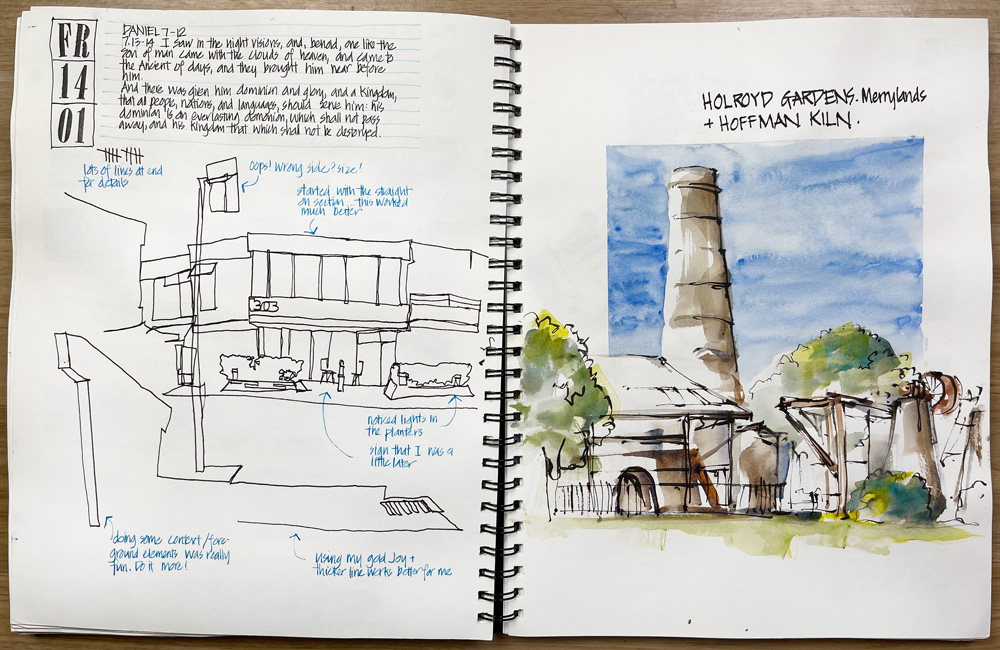 FR
14
01
DANIEL 7-12
7.13-14 I saw in the night visions, and, behold, one like the
son of man came with the clouds of heaven, and came to
the Ancient of days, and they brought him near before
him.
And there was given him dominion and glory, and a kingdom,
that all people, nations, and languages, should serve him: his
dominion is an everlasting dominion, which shall not pass
away, and his kingdom that which shall not be destroyed.
lots of lines at end
for details
Oops! wrong side? size!
started with the straight
on section ... this worked
much better
303
noticed lights in
the planters
sign that I was a
little later
doing some context/fore-
ground elements was really
fun. Do it more!
using my gold Joy +
thicker line works better for me
HOLROYD GARDENS. Merrylands
+ HOFFMAN KILN.